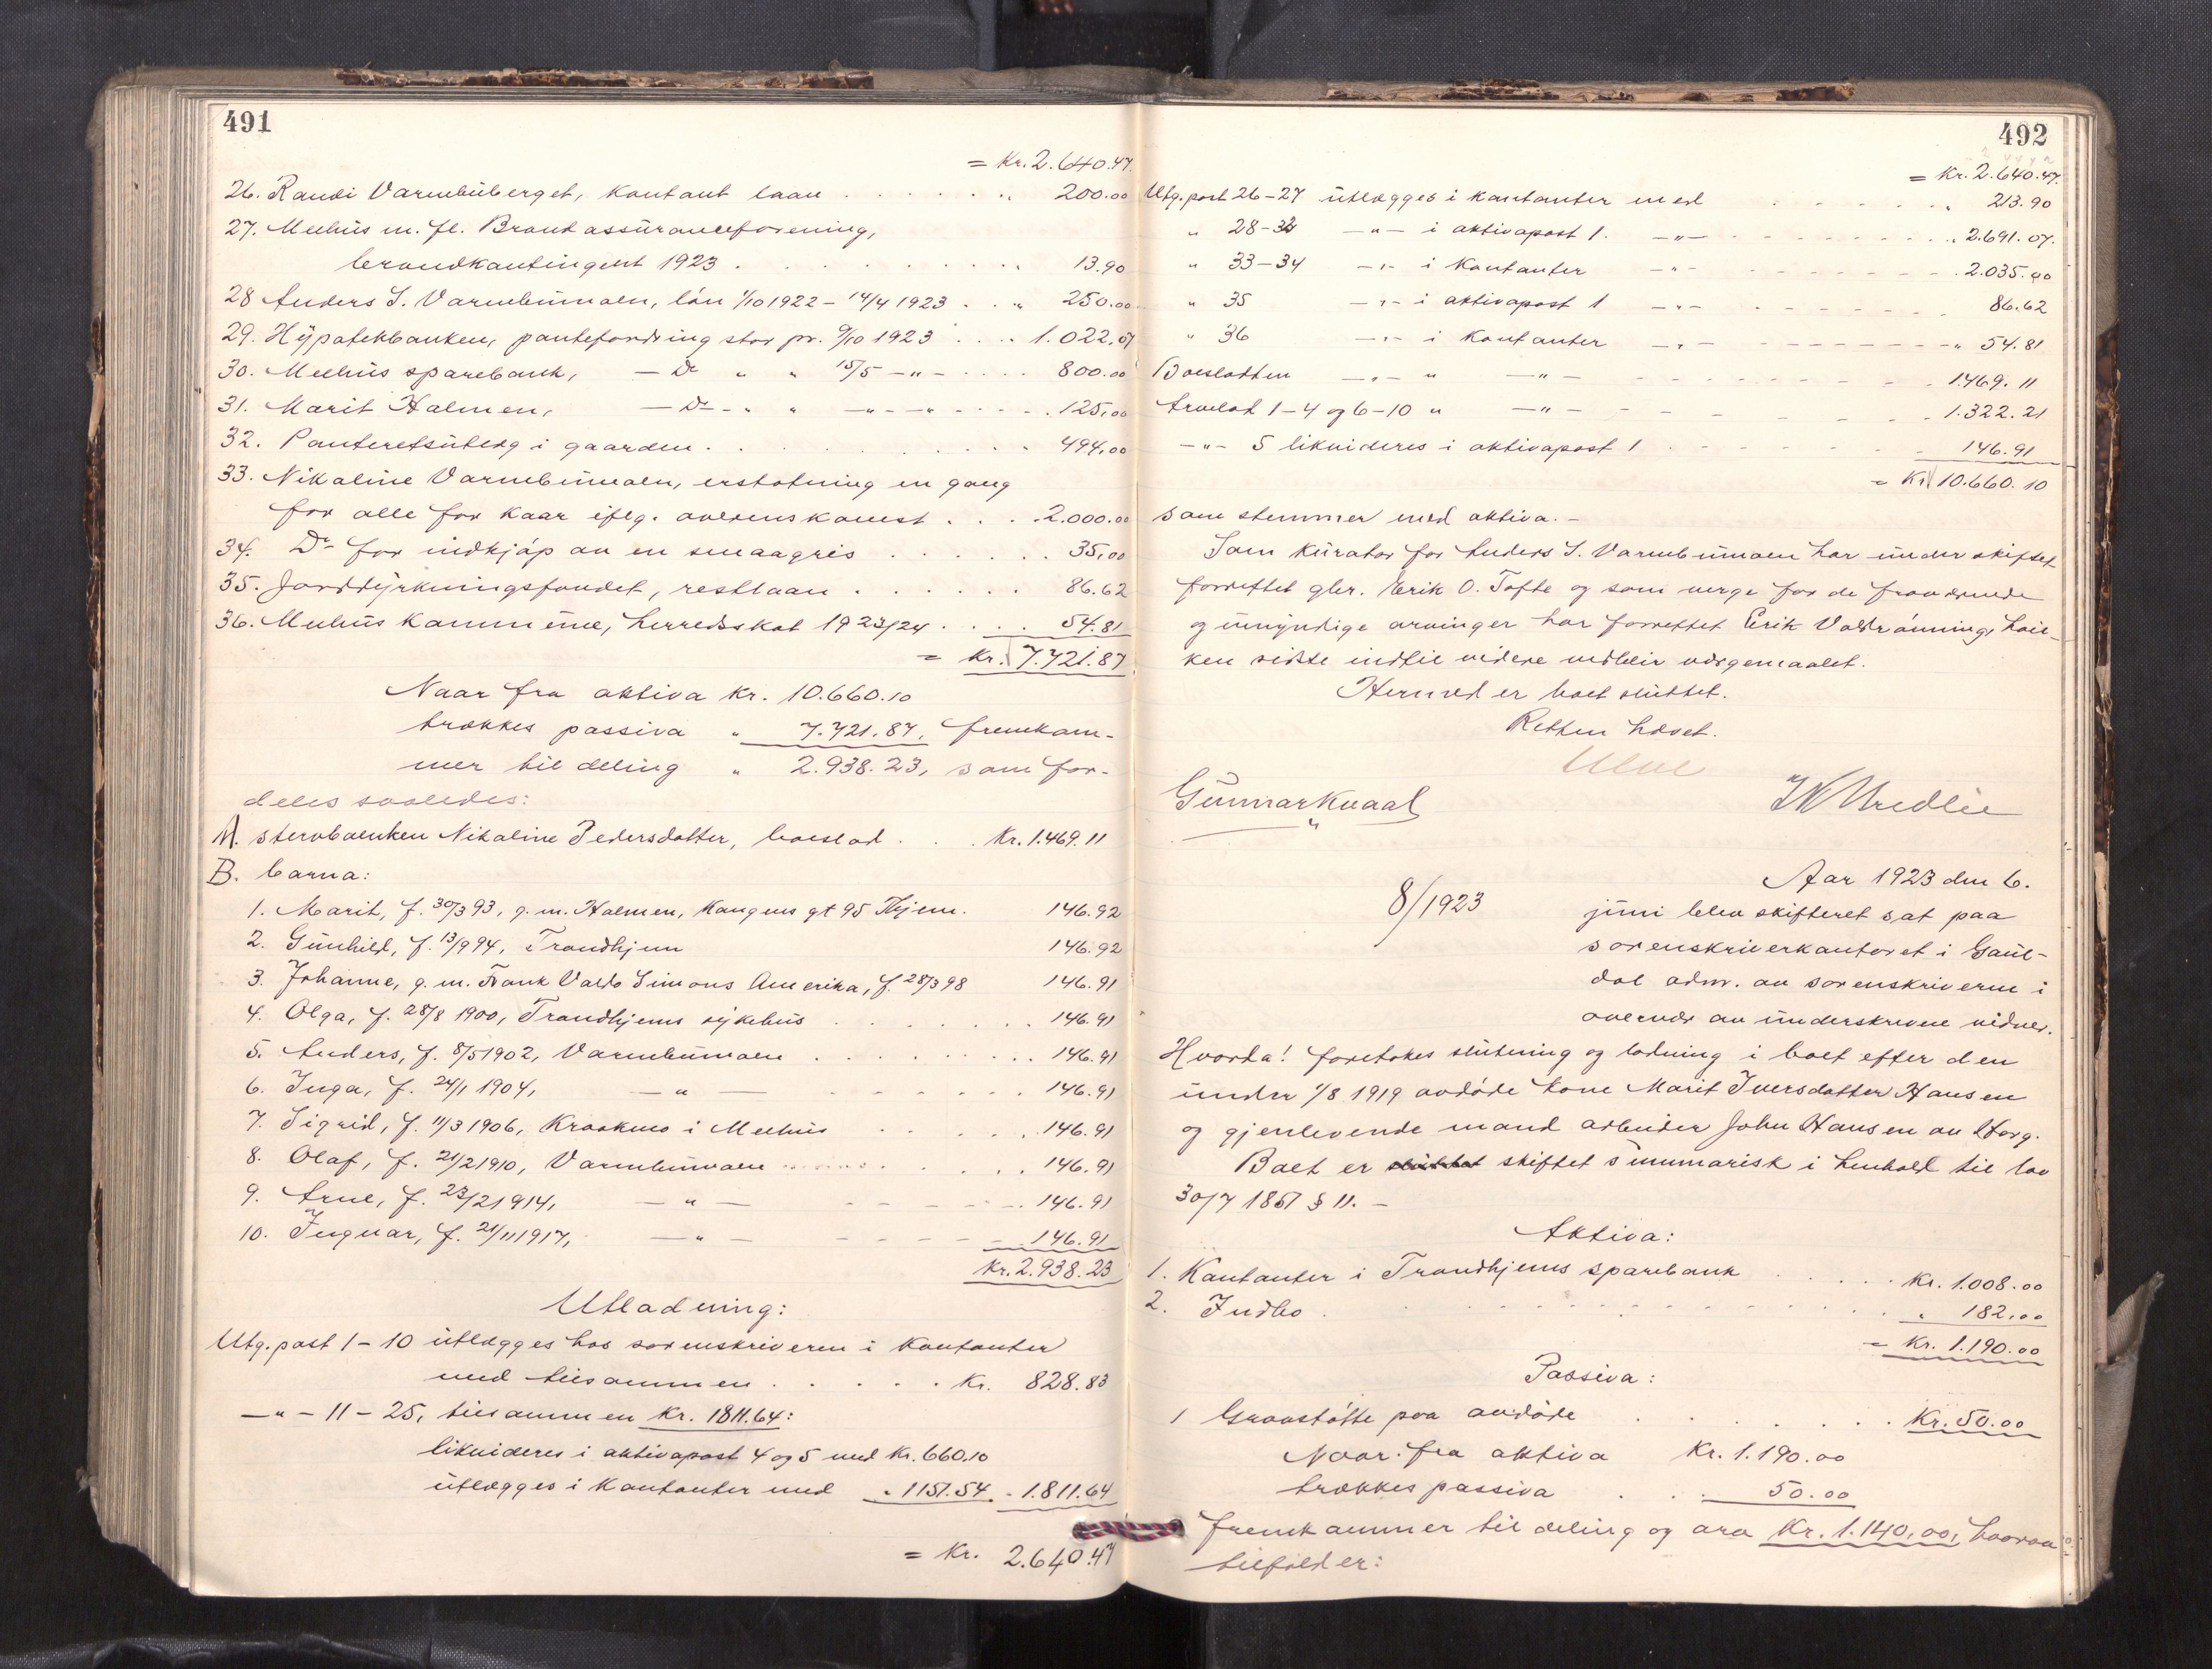 491
= Kr. 2.640.47.
26. Randi Varmbuberget, kontant laan . . . . . . „ 200.00
27. Melhus m. fl. Brandassuranceforening,
brandkontingent 1923 . . . . . . . . „ 13.90
28 Anders S. Varmbumoen, lön 1/10 1922 – 14/4 1923 . . „ 250.00
29. Hypotekbanken, pantefordring stor pr. 9/10 1923 . . . . 1.022.07
30. Melhus sparebank, — Do „ „ 15/5 – „ – . . . . 800.00
31. Marit Halmen, — Do – „ „ – „ – „ – . . . . 125,00
32. Panteretsutlæg i gaarden . . . . . . . . 494,00
33. Nikoline Varmbumoen, erstatning en gang
for alle for kaar iflg. overenskomst . . . . 2.000.00
34. Do for indkjöp av en smaagris . . . . . . 35,00
35. Jorddyrkningsfondet, restlaan . . . . . . 86.62
36. Melhus kommune, herredsskat 1923/24 . . . . 54.81
= Kr. 7.721.87
Naar fra aktiva Kr. 10.660.10
trækkes passiva „ 7.721.87, fremkom-
mer til deling „ 2.938.23, som for-
deles saaledes:
A. stervboenken Nikoline Pedersdatter, boeslod . . . Kr. 1.469.11
B. barna:
1. Marit, f. 30/3 93, g. m. Halmen, Kongens gt 95 Thjem. 146.92
2. Gunhild, f. 13/9 94, Trondhjem 146.92
3. Johanne, g. m. Frank Valdo Simons Amerika, f. 28/3 98 146.91
4. Olga, f. 28/8 1900, Trondhjems sykehus . . . . . . . 146.91
5. Anders, f. 8/5 1902, Varmbumoen . . . . . . . . 146.91
6. Inga, f. 24/1 1904, — „ — . . . . . . 146.91
7. Sigrid, f. 11/3 1906, Krookmo i Melhus . . . . . 146.91
8. Olaf, f. 21/2 1910, Varmbumoen . . . . . . . 146.91
9. Arne, f. 23/2 1914, — „ — – – – – 146.91
10. Ingvar, f. 21/11 1917, — „ — – – – – 146.91
Kr. 2.938.23
Utlodning:
Utg.post 1 – 10 utlægges hos sorenskriveren i kontanter
med tilsammen . . . . . Kr. 828.83
— „ – 11 – 25, tilsammen Kr. 1811.64:
likvideres i aktivapost 4 og 5 med Kr. 660.10
utlægges i kontanter med „ 1151.54. – 1.811.64
= Kr. 2.640.47
492
= Kr. 2.640.47.
Utg.post 26–27 utlægges i kontanter med . . . . . . „ 213.90
„ 28–32 – „ – i aktivapost 1. – „ – . . . . . . „ 2.691.07.
„ 33–34 – „ – i kontanter – „ – . . . . . . 2.035.00
„ 35 – „ – i aktivapost 1 – „ – . . . . . . 86.62
„ 36 – „ – i kontanter – „ – . . . . . . „ 54.81
Boeslodden – „ – „ – „ – . . . . . . 1469.11
Arvelod 1–4 og 6–10 „ – „ – . . . . . . 1.322.21
– „ – 5 likvideres i aktivapost 1 . . . . . . 146.91
= Kr. 10.660.10
som stemmer med aktiva. –
Som kurator for Anders S. Varmbumoen har under skiftet
forrettet gbr. Erik O. Tofte og som verge for de fraværende
og umyndige arvinger har forrettet Erik Valdrönning, hvil-
ken sidste indtil videre vedblir vergemaalet.
Hermed er boet sluttet.
Retten hævet.
Ulve
Gunnar Kvaal
Aar 1923 den 6.
8/1923
juni blev skifteret sat paa
sorenskriverkontoret i Gaul-
dal adm. av sorenskriveren i
overvær av underskrevne vidner.
Hvorda! foretokes slutning og lodning i boet efter den
under 1/8 1919 avdöde kone Marit Iversdatter Hansen
og gjenlevende mand arbeider John Hansen av Horg.
Boet er sluttet skiftet summarisk i henhold til lov
30/7 1851 § 11. –
Aktiva:
1. Kontanter i Trondhjems sparebank . . . . . Kr. 1.008.00
2. Indbo . . . . . . . . „ 182,00
= Kr. 1.190.00
Passiva:
1 Gravstötte paa avdöde . . . . . . . Kr. 50.00
Naar fra aktiva Kr. 1.190.00
trækkes passiva . . . 50.00
fremkommer til deling og arv Kr. 1.140,00, hvorav
tilfalder: